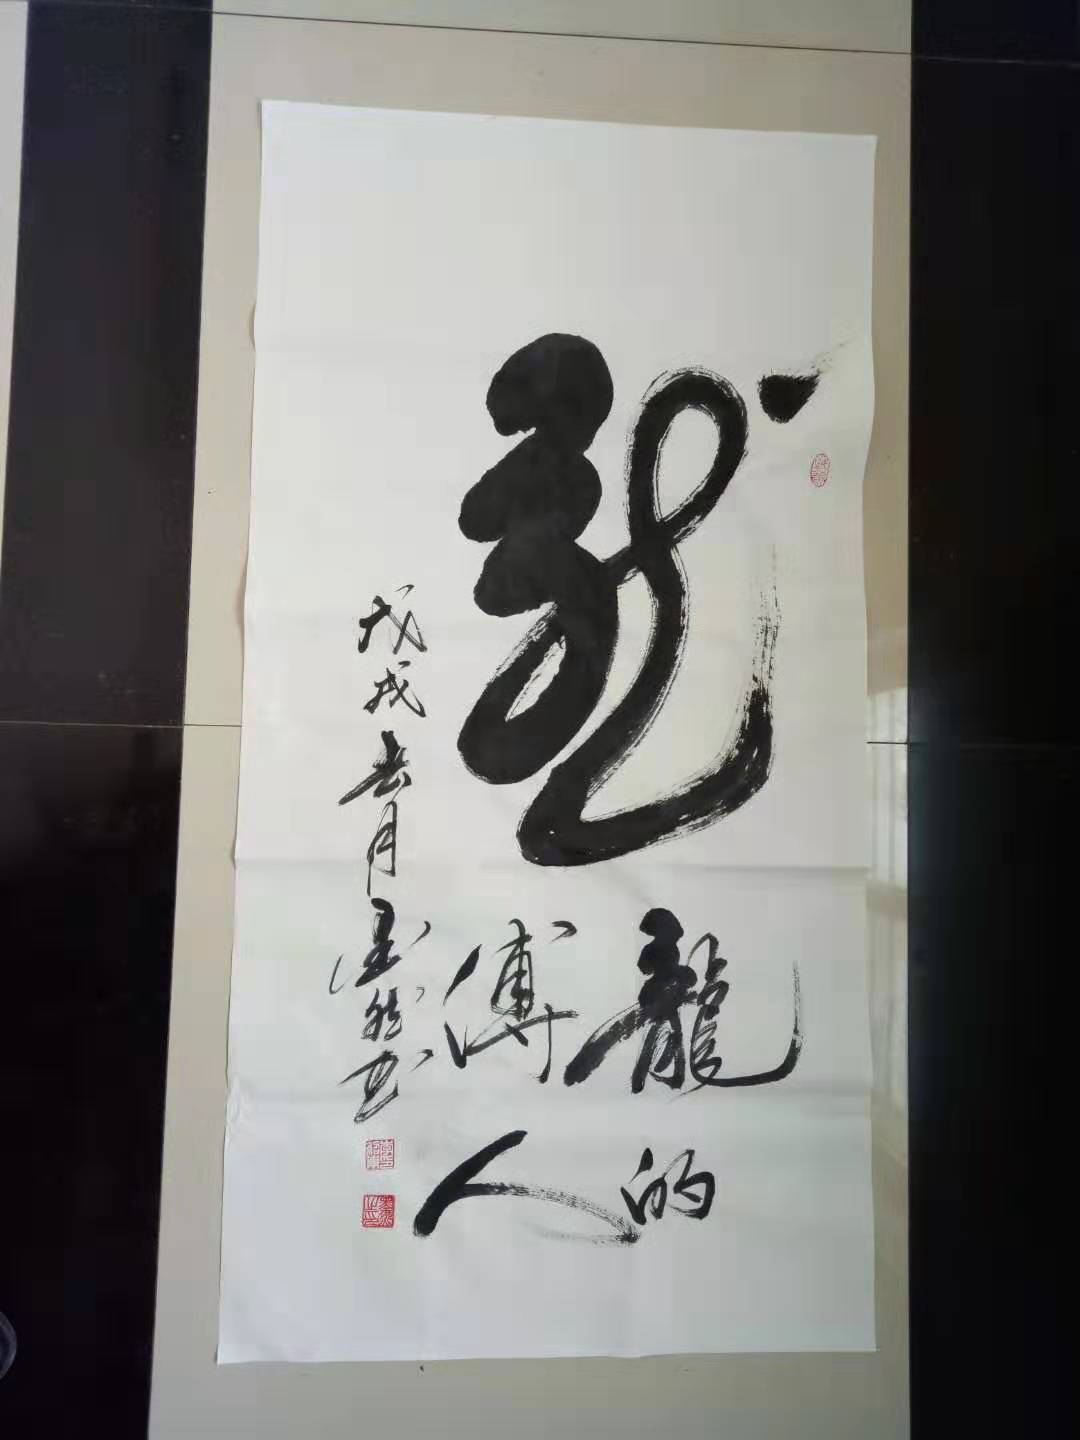 龍
龍的
傳人
戊戌吉月 书